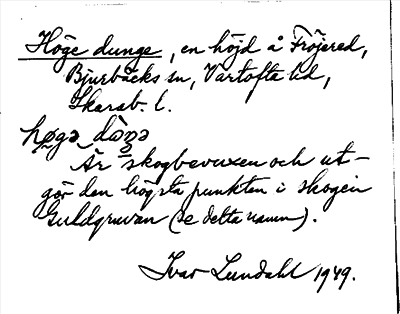 Höge dunge, en höjd å Fröjered,
Bjurbäcks sn, Vartofta hd,
Skarab. l.
høgə dàŋə
Är skogbevuxen och ut-
gör den högsta punkten i skogen
Guldgruvan (se detta namn).
Ivar Lundahl 1949.